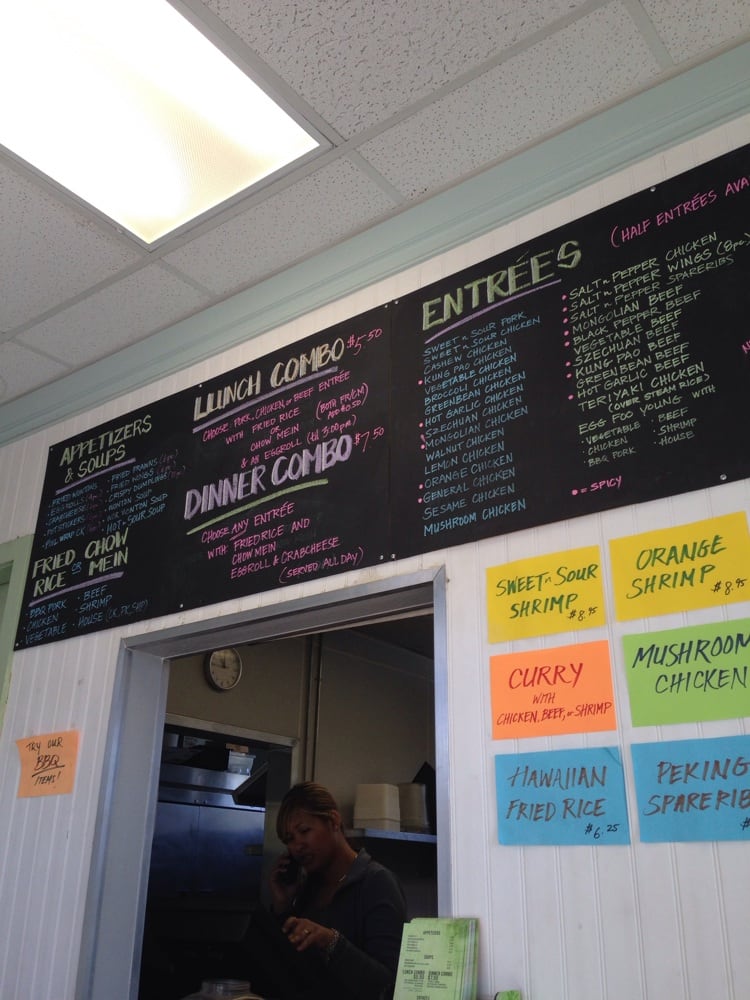 APPETIZERS
& SOUPS
FRIED WONTONS
EGGROLLS
CRABCHEESE
POTSTICKERS
FOIL WRAP CK
FRIED PRAWNS
FRIED WINGS
CRISPY DUMPLINGS
WONTON SOUP
WOR WONTON SOUP
HOT n SOUR SOUP
FRIED RICE OR CHOW MEIN
BBQ PORK
CHICKEN
VEGETABLE
BEEF
SHRIMP
HOUSE (CK, PK, SHP)
LUNCH COMBO $5.50
CHOOSE PORK, CHICKEN, OR BEEF ENTRÉE
WITH FRIED RICE
OR
CHOW MEIN
(BOTH FR/CM
ADD $0.50)
& AN EGGROLL (til 3:00pm)
DINNER COMBO $7.50
CHOOSE ANY ENTRÉE
WITH FRIED RICE AND
CHOW MEIN
EGGROLL & CRABCHEESE
(SERVED ALL DAY)
ENTRÉES
(HALF ENTRÉES
SWEET n SOUR PORK
SWEET n SOUR CHICKEN
CASHEW CHICKEN
• KUNG PAO CHICKEN
VEGETABLE CHICKEN
BROCCOLI CHICKEN
GREENBEAN CHICKEN
• HOT GARLIC CHICKEN
• SZECHUAN CHICKEN
• MONGOLIAN CHICKEN
WALNUT CHICKEN
LEMON CHICKEN
• ORANGE CHICKEN
• GENERAL CHICKEN
SESAME CHICKEN
MUSHROOM CHICKEN
• SALT n PEPPER CHICKEN
• SALT n PEPPER WINGS (8pc)
• SALT n PEPPER SPARERIBS
• MONGOLIAN BEEF
BLACK PEPPER BEEF
VEGETABLE BEEF
• SZECHUAN BEEF
• KUNG PAO BEEF
GREENBEAN BEEF
• HOT GARLIC BEEF
TERIYAKI CHICKEN
(OVER STEAM RICE)
EGG FOO YOUNG WITH
• VEGETABLE
• CHICKEN
BBQ PORK
• BEEF
• SHRIMP
HOUSE
• = SPICY
TRY OUR
BBQ
ITEMS!
SWEET n SOUR
SHRIMP
$8.95
ORANGE
SHRIMP
$8.95
CURRY
WITH
CHICKEN, BEEF, or SHRIMP
MUSHROOM
CHICKEN
HAWAIIAN
FRIED RICE
$6.25
PEKING
SPARERIB
$
APPETIZERS
SOUPS
LUNCH COMBO
$5.50
DINNER COMBO
$7.50